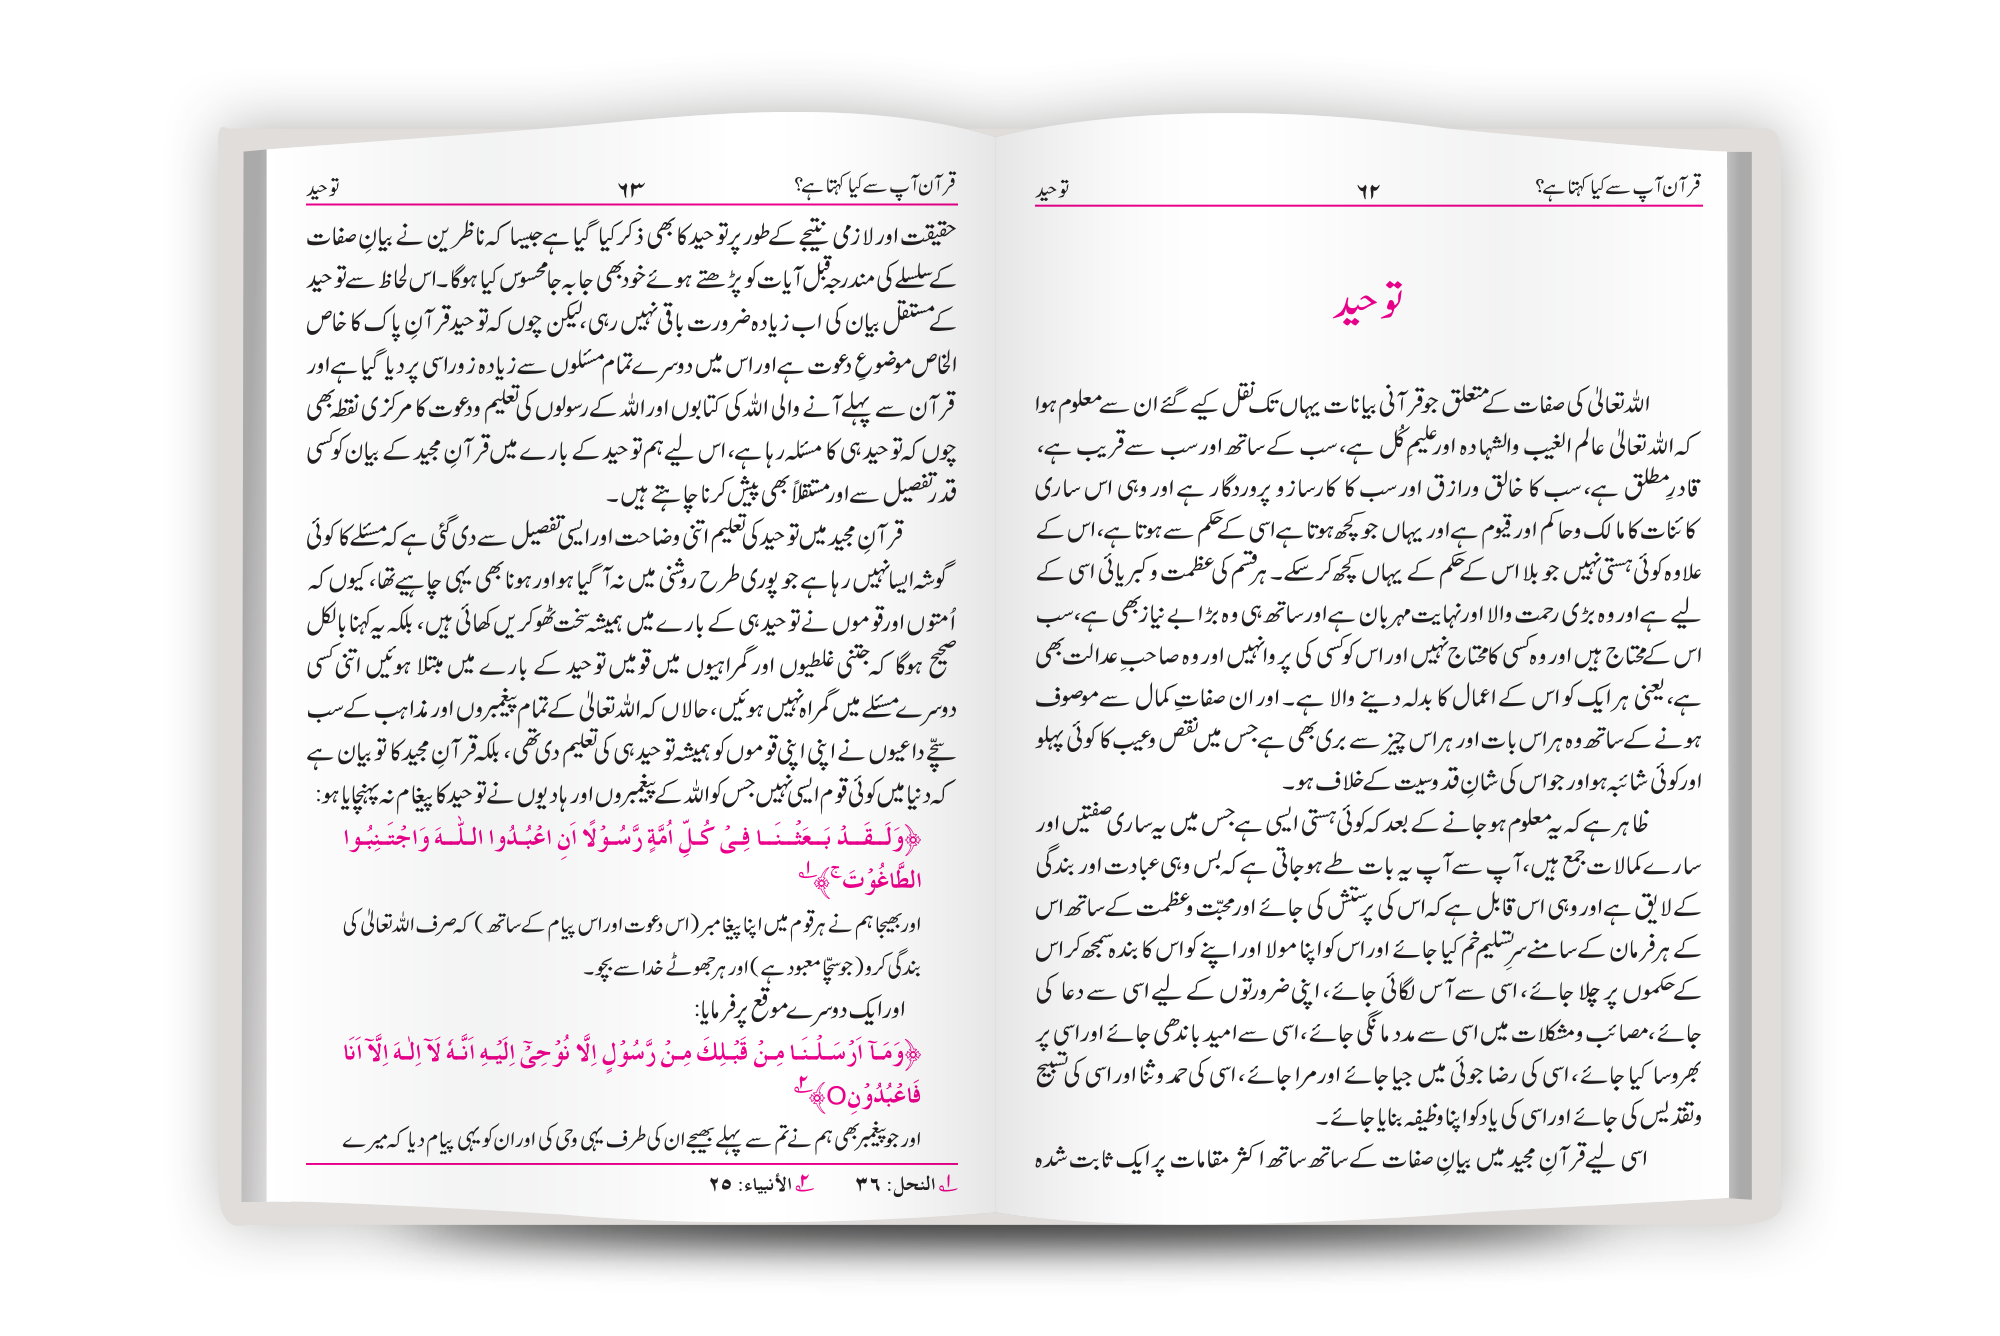 قرآن آپ سے کیا کہتا ہے؟ ۶۲ توحید
توحید
اللہ تعالیٰ کی صفات کے متعلق جو قرآنی بیانات یہاں تک نقل کیے گئے ان سے معلوم ہوا
کہ اللہ تعالیٰ عالم الغیب والشہادہ اور علیمِ کُل ہے، سب کے ساتھ اور سب سے قریب ہے،
قادرِ مطلق ہے، سب کا خالق ورازق اور سب کا کارساز و پروردگار ہے اور وہی اس ساری
کائنات کا مالک وحاکم اور قیوم ہے اور یہاں جو کچھ ہوتا ہے اسی کے حکم سے ہوتا ہے، اس کے
علاوہ کوئی ہستی نہیں جو بلا اس کے حکم کے یہاں کچھ کرسکے۔ ہر قسم کی عظمت و کبریائی اسی کے
لیے ہے اور وہ بڑی رحمت والا اور نہایت مہربان ہے اور ساتھ ہی وہ بڑا بے نیاز بھی ہے، سب
اس کے محتاج ہیں اور وہ کسی کا محتاج نہیں اور اس کو کسی کی پروا نہیں اور وہ صاحبِ عدالت بھی
ہے، یعنی ہر ایک کو اس کے اعمال کا بدلہ دینے والا ہے۔ اور ان صفاتِ کمال سے موصوف
ہونے کے ساتھ وہ ہر اس بات اور ہر اس چیز سے بری بھی ہے جس میں نقص و عیب کا کوئی پہلو
اور کوئی شائبہ ہو اور جو اس کی شانِ قدوسیت کے خلاف ہو۔
ظاہر ہے کہ یہ معلوم ہوجانے کے بعد کہ کوئی ہستی ایسی ہے جس میں یہ ساری صفتیں اور
سارے کمالات جمع ہیں، آپ سے آپ یہ بات طے ہوجاتی ہے کہ بس وہی عبادت اور بندگی
کے لایق ہے اور وہی اس قابل ہے کہ اس کی پرستش کی جائے اور محبّت وعظمت کے ساتھ اس
کے ہر فرمان کے سامنے سرِ تسلیم خم کیا جائے اور اس کو اپنا مولا اور اپنے کو اس کا بندہ سمجھ کر اس
کے حکموں پر چلا جائے، اسی سے آس لگائی جائے، اپنی ضرورتوں کے لیے اسی سے دعا کی
جائے، مصائب ومشکلات میں اسی سے مدد مانگی جائے، اسی سے امید باندھی جائے اور اسی پر
بھروسا کیا جائے، اسی کی رضا جوئی میں جیا جائے اور مرا جائے، اسی کی حمد وثنا اور اسی کی تسبیح
وتقدیس کی جائے اور اسی کی یاد کو اپنا وظیفہ بنایا جائے۔
اسی لیے قرآنِ مجید میں بیانِ صفات کے ساتھ ساتھ اکثر مقامات پر ایک ثابت شدہ
قرآن آپ سے کیا کہتا ہے؟ ۶۳ توحید
حقیقت اور لازمی نتیجے کے طور پر توحید کا بھی ذکر کیا گیا ہے جیسا کہ ناظرین نے بیانِ صفات
کے سلسلے کی مندرجہ قبل آیات کو پڑھتے ہوئے خود بھی جابہ جا محسوس کیا ہوگا۔ اس لحاظ سے توحید
کے مستقل بیان کی اب زیادہ ضرورت باقی نہیں رہی، لیکن چوں کہ توحید قرآنِ پاک کا خاص
الخاص موضوعِ دعوت ہے اور اس میں دوسرے تمام مسئلوں سے زیادہ زور اسی پر دیا گیا ہے اور
قرآن سے پہلے آنے والی اللہ کی کتابوں اور اللہ کے رسولوں کی تعلیم ودعوت کا مرکزی نقطہ بھی
چوں کہ توحید ہی کا مسئلہ رہا ہے، اس لیے ہم توحید کے بارے میں قرآنِ مجید کے بیان کو کسی
قدر تفصیل سے اور مستقلاً بھی پیش کرنا چاہتے ہیں۔
قرآنِ مجید میں توحید کی تعلیم اتنی وضاحت اور ایسی تفصیل سے دی گئی ہے کہ مسئلے کا کوئی
گوشہ ایسا نہیں رہا ہے جو پوری طرح روشنی میں نہ آگیا ہو اور ہونا بھی یہی چاہیے تھا، کیوں کہ
اُمتوں اور قوموں نے توحید ہی کے بارے میں ہمیشہ سخت ٹھوکریں کھائی ہیں، بلکہ یہ کہنا بالکل
صحیح ہوگا کہ جتنی غلطیوں اور گمراہیوں میں قومیں توحید کے بارے میں مبتلا ہوئیں اتنی کسی
دوسرے مسئلے میں گمراہ نہیں ہوئیں، حالاں کہ اللہ تعالیٰ کے تمام پیغمبروں اور مذاہب کے سب
سچّے داعیوں نے اپنی اپنی قوموں کو ہمیشہ توحید ہی کی تعلیم دی تھی، بلکہ قرآنِ مجید کا تو بیان ہے
کہ دنیا میں کوئی قوم ایسی نہیں جس کو اللہ کے پیغمبروں اور ہادیوں نے توحید کا پیغام نہ پہنچایا ہو:
﴿وَلَقَدْ بَعَثْنَا فِیْ کُلِّ اُمَّةٍ رَّسُوْلًا اَنِ اعْبُدُوا اللّٰهَ وَاجْتَنِبُوا
الطَّاغُوْتَ ۚ﴾ ۱؎
اور بھیجا ہم نے ہر قوم میں اپنا پیغامبر (اس دعوت اور اس پیام کے ساتھ) کہ صرف اللہ تعالیٰ کی
بندگی کرو (جو سچّا معبود ہے) اور ہر جھوٹے خدا سے بچو۔
اور ایک دوسرے موقع پر فرمایا:
﴿وَمَآ اَرْسَلْنَا مِنْ قَبْلِكَ مِنْ رَّسُوْلٍ اِلَّا نُوْحِیْٓ اِلَیْهِ اَنَّهٗ لَآ اِلٰهَ اِلَّآ اَنَا
فَاعْبُدُوْنِ○﴾ ۲؎
اور جو پیغمبر بھی ہم نے تم سے پہلے بھیجے ان کی طرف یہی وحی کی اور ان کو یہی پیام دیا کہ میرے
۱؎ النحل: ۳۶ ۲؎ الأنبیاء: ۲۵